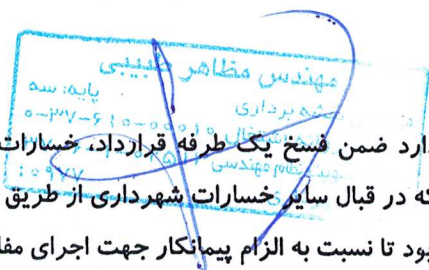 مهندس مظاهر طبیبی
پایه: سه
دارد ضمن فسخ یک طرفه قرارداد، خسارات
که در قبال سایر خسارات شهرداری از طریق
بود تا نسبت به الزام پیمانکار جهت اجرای مفا